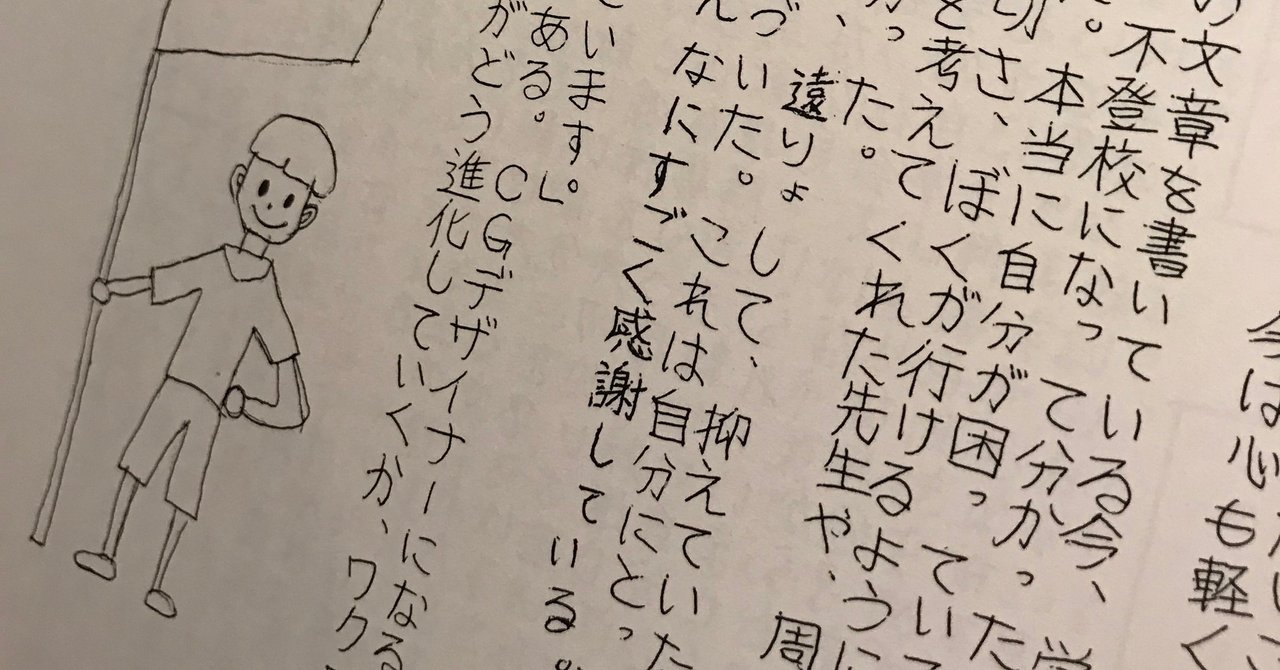 今は心
も軽く
の文章を書いている今、
不登校になって分かった
。本当に自分が困っていて
切さ、ぼくが行けるように
を考えてくれた先生や、周
かった。
遠りょして、抑えていた
づいた。これは自分にとっ
んなにすごく感謝している。
います。
ある。」CGデザイナーになる
がどう進化していくか、ワク